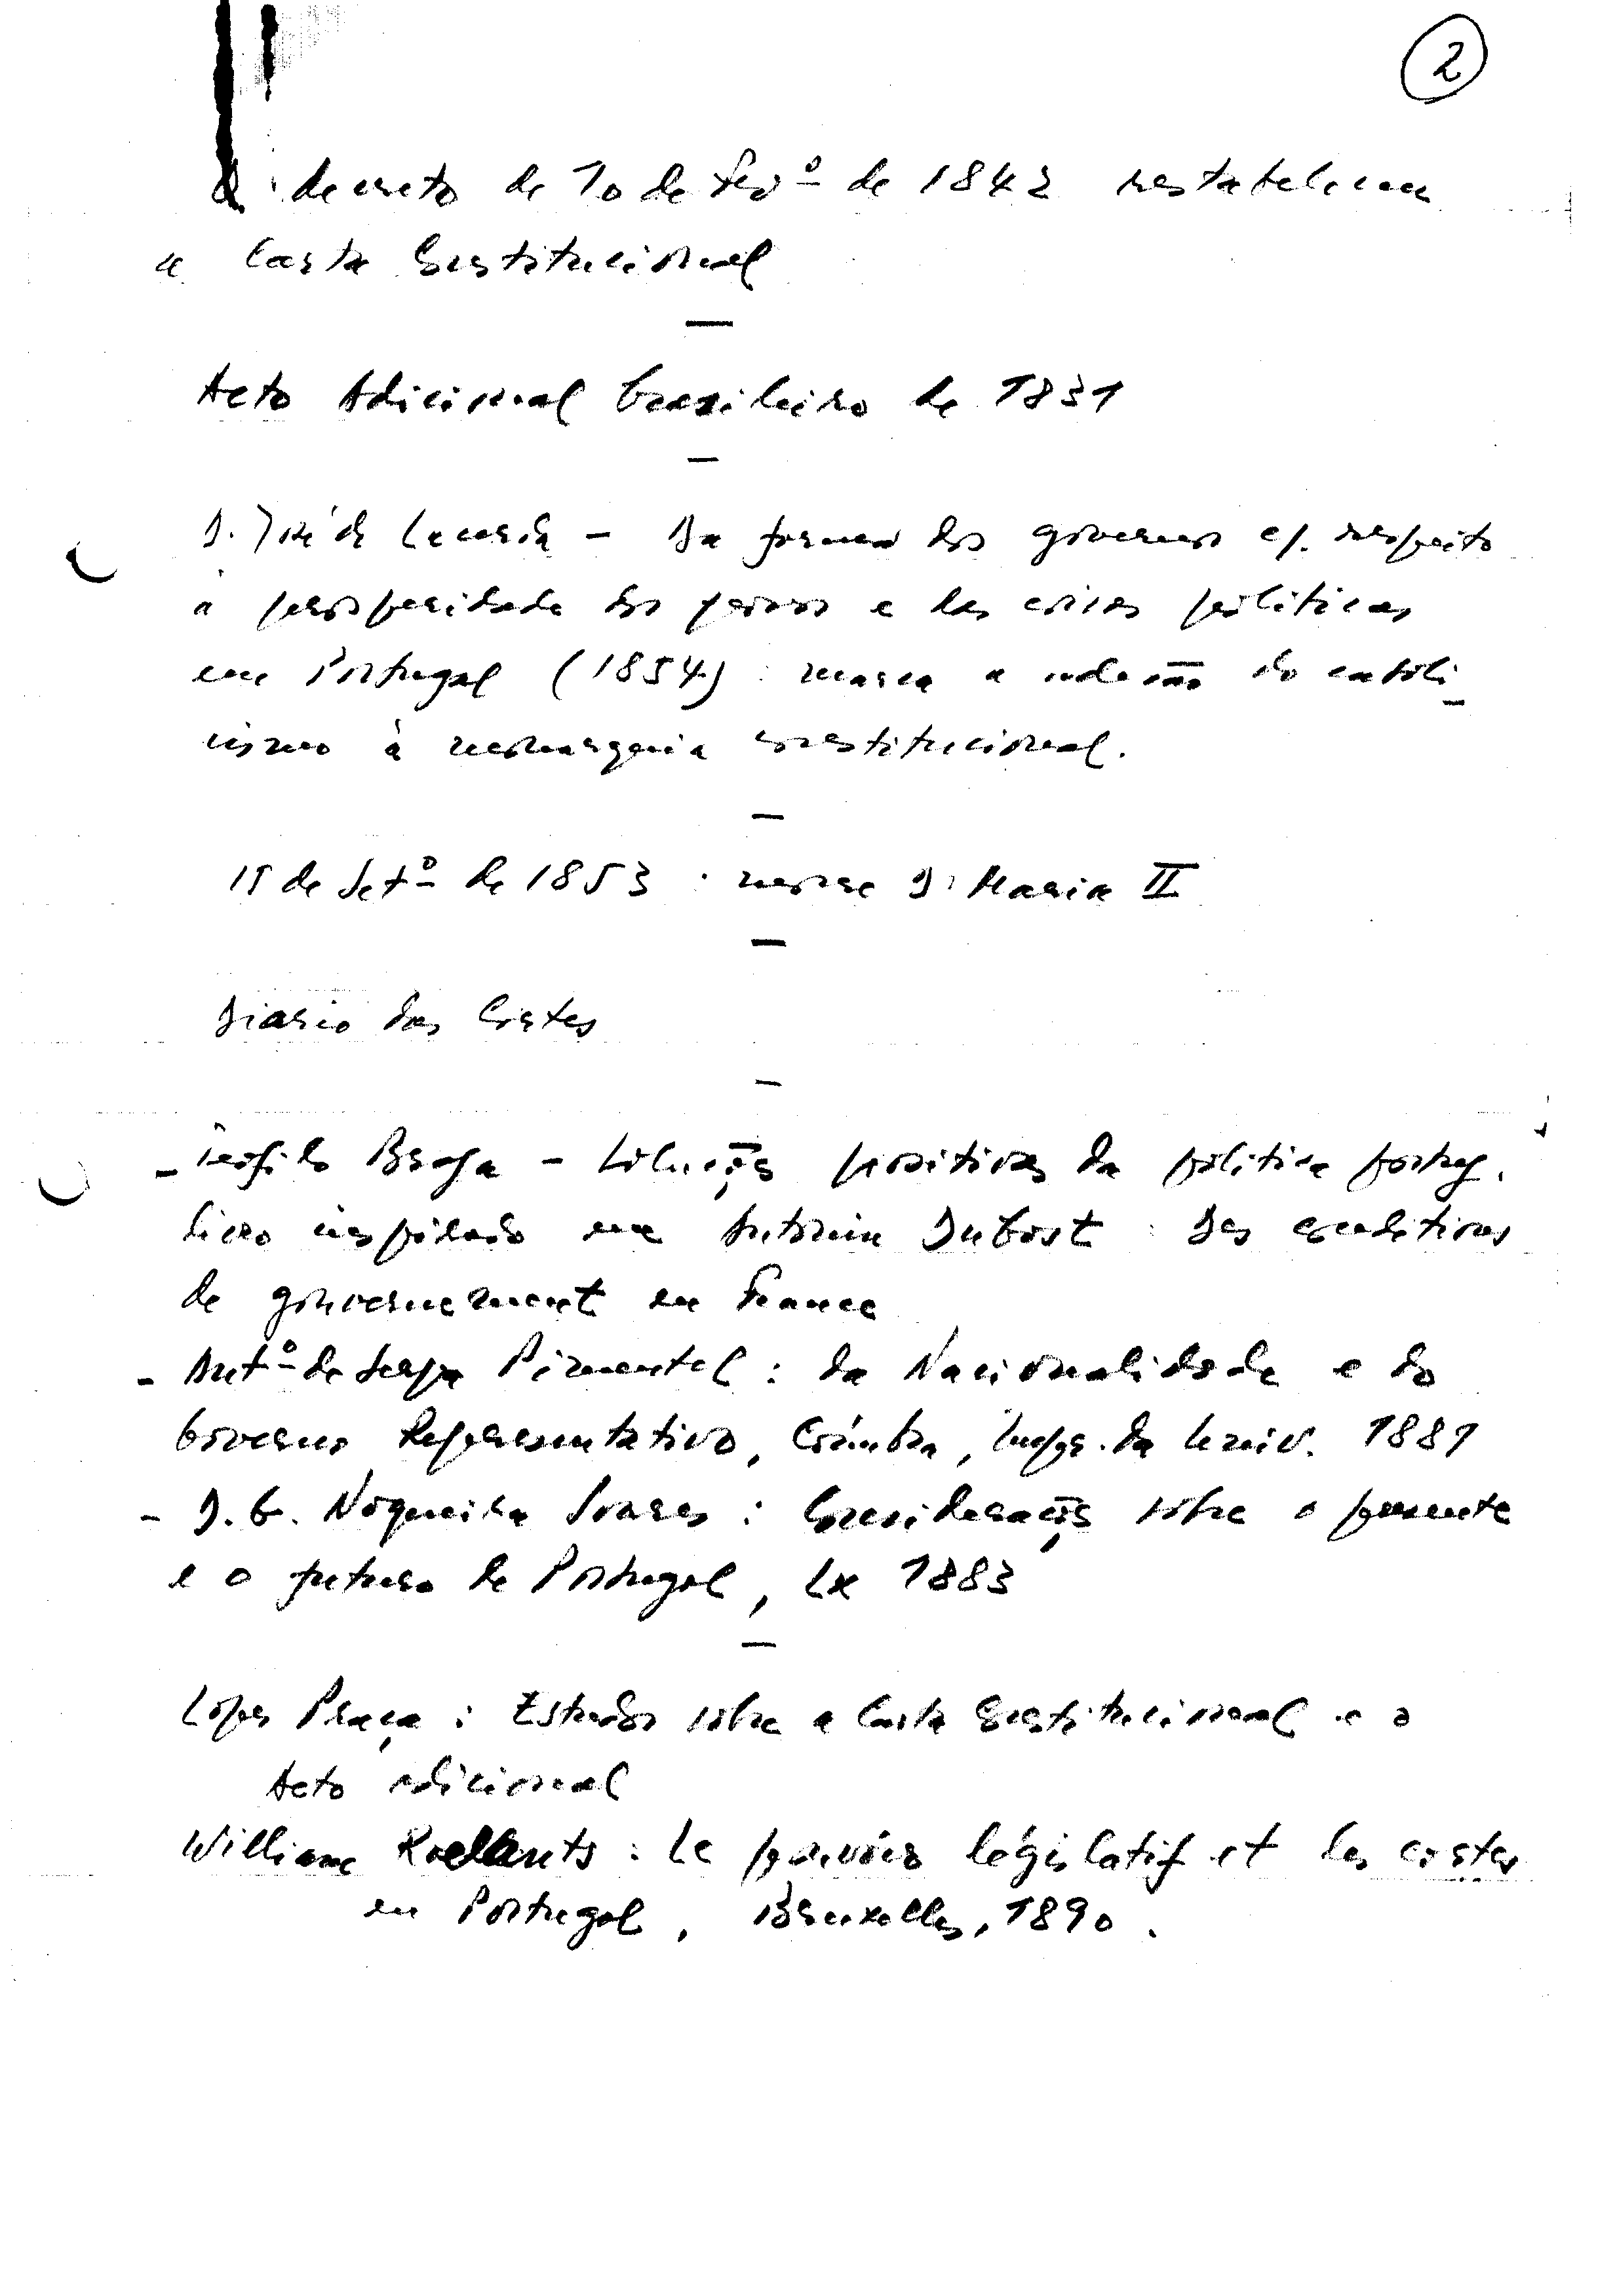 2
O decreto de 10 de Fevº de 1842 restabeleceu
a Carta Constitucional
Acto Adicional brasileiro de 1831
D. José de Lacerda - Da forma dos governos c/. respeito
à prosperidade dos povos e das coisas políticas
em Portugal (1854) : marca a adesão do catoli
cismo à monarquia constitucional.
15 de Setº de 1853 : morre D. Maria II
Diario das Cortes
- Teófilo Braga - Soluções positivas da política portug.
livro inspirado em Antonin Dubost : Des conditions
de gouvernement en France
- Antº de Serpa Pimentel : da Nacionalidade e do
Governo Representativo, Coimbra, Impr. da Univ. 1881
- D. G. Nogueira Soares : Considerações sobre o presente
e o futuro de Portugal, Lx 1883
Lopes Praça : Estudos sobre a Carta Constitucional e o
Acto adicional
William Roelants : Le pouvoir législatif et les cortes
en Portugal, Bruxelles, 1890.